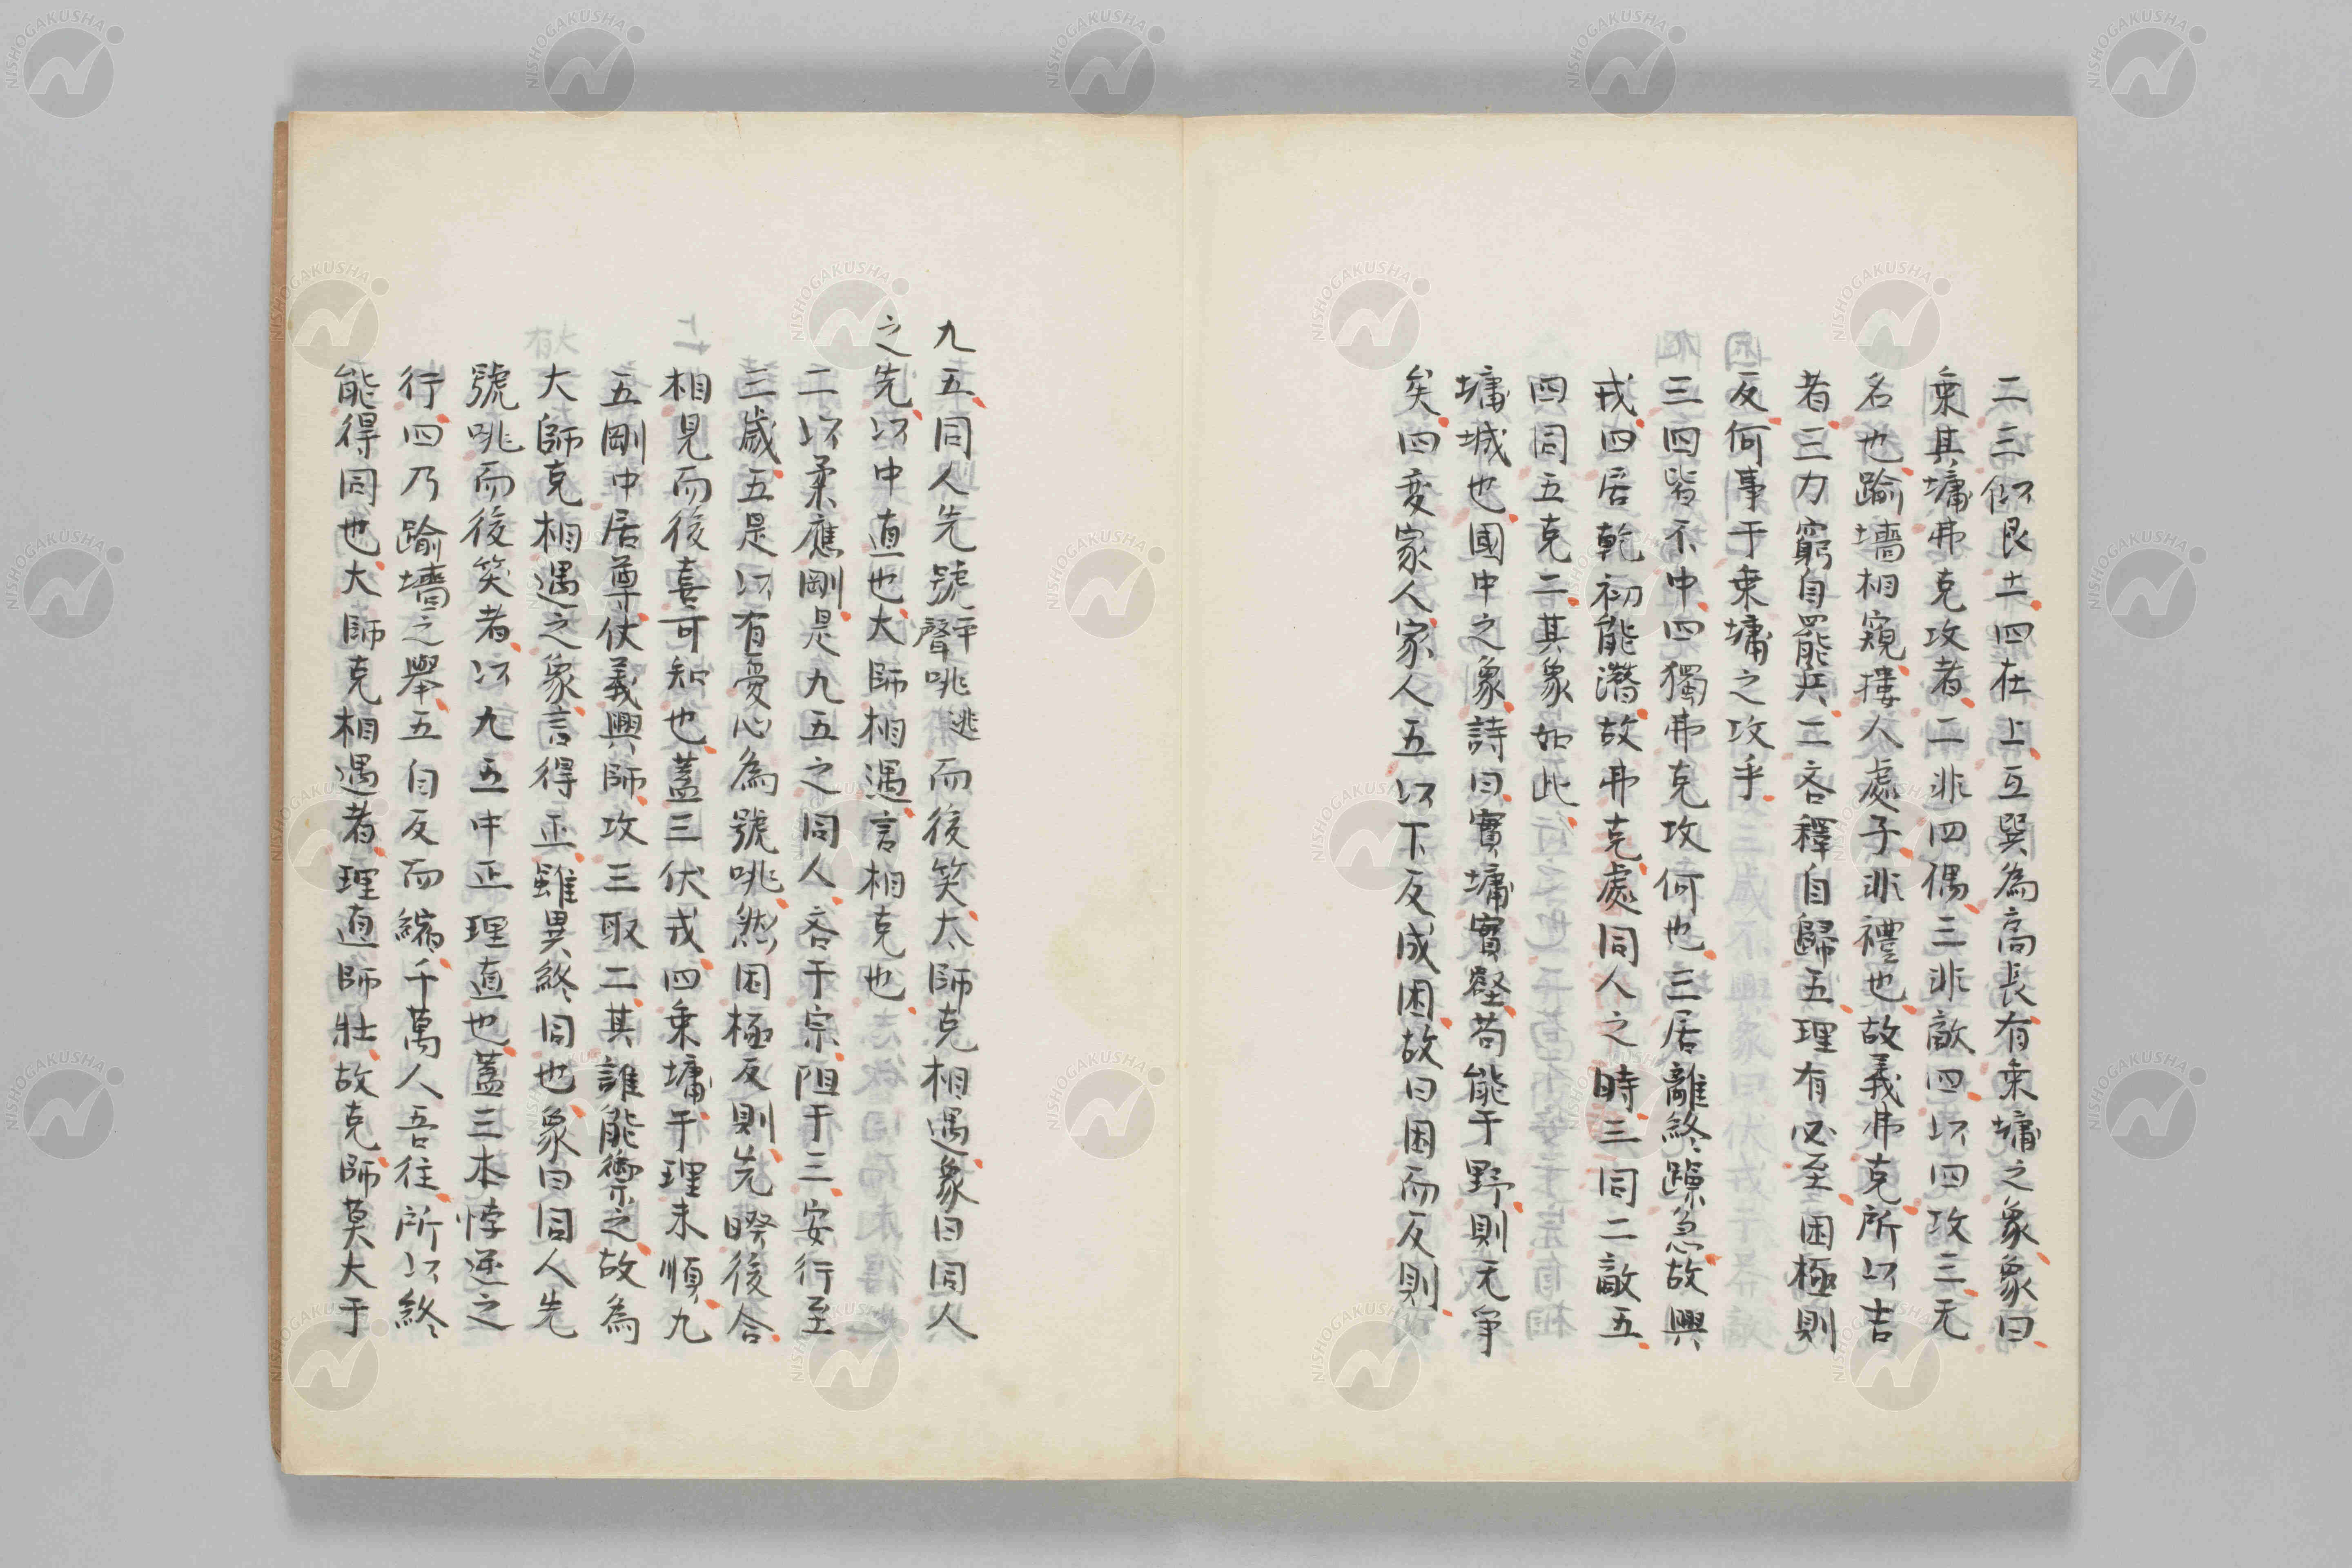 二三似艮土四在上互巽為高長有乗墉之象象曰
乗其墉弗克攻者二非四偶三非敵四以四攻三无
名也踰墻相窺摟人處子非禮也故義弗克所以吉
者三力窮自罷兵二吝釋自歸五理有必至困極則
反何事于乗墉之攻乎
三四皆不中四獨弗克攻何也三居離終躁急故興
戎四居乾初能潛故弗克處同人之時三同二敵五
四同五克二其象如此
墉城也國中之象詩曰實墉實壑苟能于野則无爭
矣四変家人家人五以下反成困故曰困而反則
九五同人先號咷而後笑大師克相遇象曰同人
之先以中直也大師相遇言相克也
二以柔應剛是九五之同人吝于宗阻于三安行至
三歳五是以有憂心為號咷然困極反則先睽後合
相見而後喜可知也蓋三伏戎四乗墉于理未順九
五剛中居尊仗義興師攻三取二其誰能禦之故為
大師克相遇之象言得正雖異終同也象曰同人先
號咷而後笑者以九五中正理直也蓋三本悖逆之
行四乃踰墻之舉五自反而縮千萬人吾往所以終
能得同也大師克相遇者理直師壯故克師莫大于
NISHOGAKUSHA